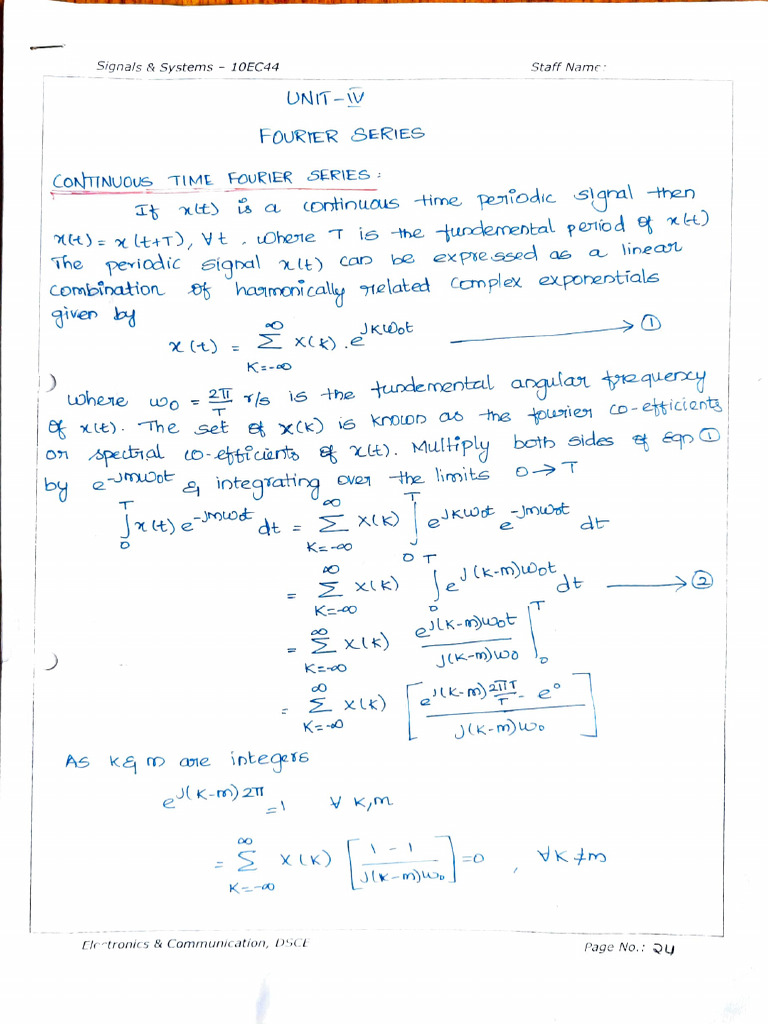 Signals & Systems – 10EC44 Staff Name:
UNIT-IV
FOURIER SERIES
CONTINUOUS TIME FOURIER SERIES:
If x(t) is a continuous time periodic signal then
x(t) = x(t+T), ∀t. Where T is the fundemental period of x(t)
The periodic signal x(t) can be expressed as a linear
combination of harmonically related complex exponentials
given by
x(t) = ∑_{K=-∞}^{∞} X(k).e^{jkω₀t} → ①
Where ω₀ = 2π/T r/s is the fundemental angular frequency
of x(t). The set of X(k) is known as the fourier co-efficients
or spectral co-efficients of x(t). Multiply both sides of Eqn ①
by e^{-jmω₀t} & integrating over the limits 0→T
∫_0^T x(t) e^{-jmω₀t} dt = ∑_{K=-∞}^{∞} X(k) ∫_0^T e^{jkω₀t} e^{-jmω₀t} dt
= ∑_{K=-∞}^{∞} X(k) ∫_0^T e^{j(k-m)ω₀t} dt → ②
= ∑_{K=-∞}^{∞} X(k) e^{j(k-m)ω₀t} / j(k-m)ω₀ |_0^T
= ∑_{K=-∞}^{∞} X(k) [ e^{j(k-m)2πT/T} - e⁰ / j(k-m)ω₀ ]
As k & m are integers
e^{j(k-m)2π} = 1 ∀ k,m
= ∑_{K=-∞}^{∞} X(k) [ 1-1 / j(k-m)ω₀ ] = 0 , ∀k ≠ m
Electronics & Communication, DSCE Page No.: 24